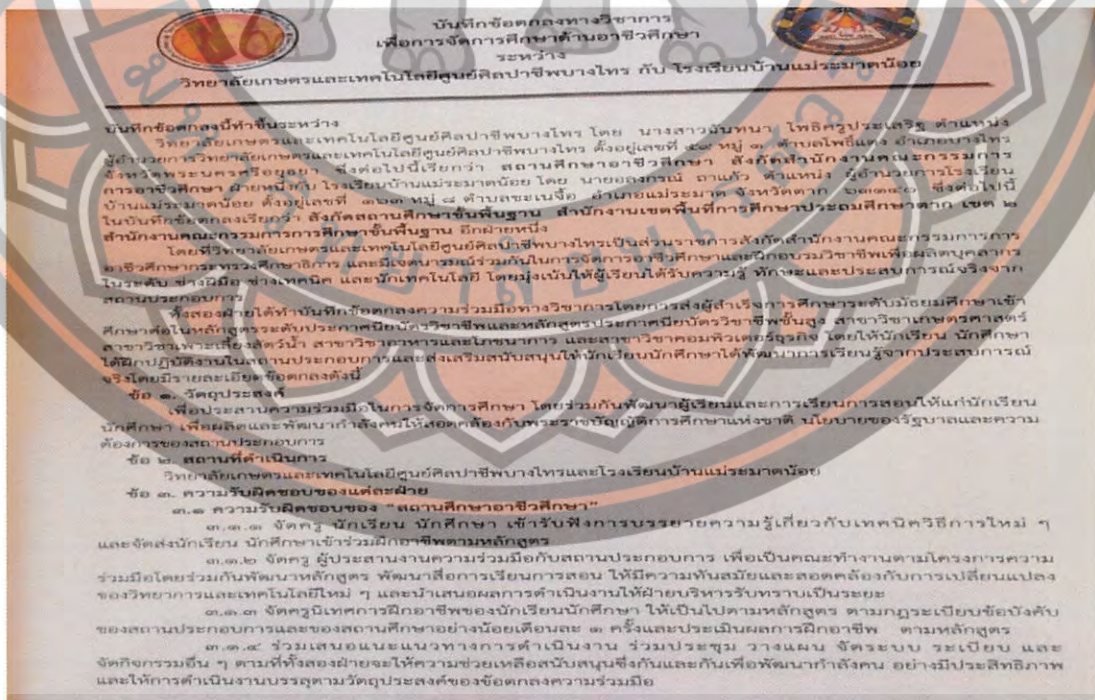 บันทึกข้อตกลงทางวิชาการ
เพื่อการจัดการศึกษาด้านอาชีวศึกษา
ระหว่าง
วิทยาลัยเกษตรและเทคโนโลยีศูนย์ศิลปาชีพบางไทร กับ โรงเรียนบ้านแม่ระมาดน้อย
บันทึกข้อตกลงนี้ทำขึ้นระหว่าง
วิทยาลัยเกษตรและเทคโนโลยีศูนย์ศิลปาชีพบางไทร โดย นางสาวฉันทนา โพธิครูประเสริฐ ตำแหน่ง
ผู้อำนวยการวิทยาลัยเกษตรและเทคโนโลยีศูนย์ศิลปาชีพบางไทร ตั้งอยู่เลขที่ ๕๙ หมู่ ๓ ตำบลโพธิ์แตง อำเภอบางไทร
จังหวัดพระนครศรีอยุธยา ซึ่งต่อไปนี้เรียกว่า สถานศึกษาอาชีวศึกษา สังกัดสำนักงานคณะกรรมการ
การอาชีวศึกษา ฝ่ายหนึ่งกับ โรงเรียนบ้านแม่ระมาดน้อย โดย นายอลงกรณ์ ถาแก้ว ตำแหน่ง ผู้อำนวยการโรงเรียน
บ้านแม่ระมาดน้อย ตั้งอยู่เลขที่ ๑๖๓ หมู่ ๘ ตำบลขะเนจื้อ อำเภอแม่ระมาด จังหวัดตาก ๖๓๑๔๐ ซึ่งต่อไปนี้
ในบันทึกข้อตกลงเรียกว่า สังกัดสถานศึกษาขั้นพื้นฐาน สำนักงานเขตพื้นที่การศึกษาประถมศึกษาตาก เขต ๒
สำนักงานคณะกรรมการการศึกษาขั้นพื้นฐาน อีกฝ่ายหนึ่ง
โดยที่วิทยาลัยเกษตรและเทคโนโลยีศูนย์ศิลปาชีพบางไทรเป็นส่วนราชการสังกัดสำนักงานคณะกรรมการการ
อาชีวศึกษากระทรวงศึกษาธิการ และมีเจตนารมณ์ร่วมกันในการจัดการอาชีวศึกษาและฝึกอบรมวิชาชีพเพื่อผลิตบุคลากร
ในระดับ ช่างฝีมือ ช่างเทคนิค และนักเทคโนโลยี โดยมุ่งเน้นให้ผู้เรียนได้รับความรู้ ทักษะและประสบการณ์จริงจาก
สถานประกอบการ
ทั้งสองฝ่ายได้ทำบันทึกข้อตกลงความร่วมมือทางวิชาการโดยการส่งผู้สำเร็จการศึกษาระดับมัธยมศึกษาเข้า
ศึกษาต่อในหลักสูตรระดับประกาศนียบัตรวิชาชีพและหลักสูตรประกาศนียบัตรวิชาชีพชั้นสูง สาขาวิชาเกษตรศาสตร์
สาขาวิชาเพาะเลี้ยงสัตว์น้ำ สาขาวิชาอาหารและโภชนาการ และสาขาวิชาคอมพิวเตอร์ธุรกิจ โดยให้นักเรียน นักศึกษา
ได้ฝึกปฏิบัติงานในสถานประกอบการและส่งเสริมสนับสนุนให้นักเรียนนักศึกษาได้พัฒนาการเรียนรู้จากประสบการณ์
จริงโดยมีรายละเอียดข้อตกลงดังนี้
ข้อ ๑. วัตถุประสงค์
เพื่อประสานความร่วมมือในการจัดการศึกษา โดยร่วมกันพัฒนาผู้เรียนและการเรียนการสอนให้แก่นักเรียน
นักศึกษา เพื่อผลิตและพัฒนากำลังคนให้สอดคล้องกับพระราชบัญญัติการศึกษาแห่งชาติ นโยบายของรัฐบาลและความ
ต้องการของสถานประกอบการ
ข้อ ๒. สถานที่ดำเนินการ
วิทยาลัยเกษตรและเทคโนโลยีศูนย์ศิลปาชีพบางไทรและโรงเรียนบ้านแม่ระมาดน้อย
ข้อ ๓. ความรับผิดชอบของแต่ละฝ่าย
๓.๑ ความรับผิดชอบของ "สถานศึกษาอาชีวศึกษา"
๓.๑.๑ จัดครู นักเรียน นักศึกษา เข้ารับฟังการบรรยายความรู้เกี่ยวกับเทคนิควิธีการใหม่ ๆ
และจัดส่งนักเรียน นักศึกษาเข้าร่วมฝึกอาชีพตามหลักสูตร
๓.๑.๒ จัดครู ผู้ประสานงานความร่วมมือกับสถานประกอบการ เพื่อเป็นคณะทำงานตามโครงการความ
ร่วมมือโดยร่วมกันพัฒนาหลักสูตร พัฒนาสื่อการเรียนการสอน ให้มีความทันสมัยและสอดคล้องกับการเปลี่ยนแปลง
ของวิทยาการและเทคโนโลยีใหม่ ๆ และนำเสนอผลการดำเนินงานให้ฝ่ายบริหารรับทราบเป็นระยะ
๓.๑.๓ จัดครูนิเทศการฝึกอาชีพของนักเรียนนักศึกษา ให้เป็นไปตามหลักสูตร ตามกฎระเบียบข้อบังคับ
ของสถานประกอบการและของสถานศึกษาอย่างน้อยเดือนละ ๑ ครั้งและประเมินผลการฝึกอาชีพ ตามหลักสูตร
๓.๑.๔ ร่วมเสนอแนะแนวทางการดำเนินงาน ร่วมประชุม วางแผน จัดระบบ ระเบียบ และ
จัดกิจกรรมอื่น ๆ ตามที่ทั้งสองฝ่ายจะให้ความช่วยเหลือสนับสนุนซึ่งกันและกันเพื่อพัฒนากำลังคน อย่างมีประสิทธิภาพ
และให้การดำเนินงานบรรลุตามวัตถุประสงค์ของข้อตกลงความร่วมมือ